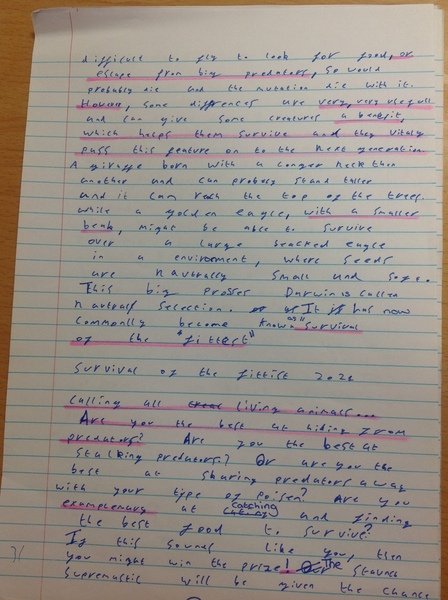 difficult to fly to look for food, or
escape from big predators, so would
probably die and the mutation die with it.
However, some differences are very, very useful
and can give some creatures a benefit,
which helps them survive and they vitaly
pass this feature on to the next generation.
A giraffe born with a longer neck than
another and can probably stand taller
and it can reach the top of the trees.
while a golden eagle, with a smaller
beak, might be able to survive
over a large beacked eagle
in a environment, where seeds
are nautrally small and soft.
This big prosser Darwin is called
Nautralf Selection. It has now
commonly become known as "survival
of the "fittest"
Survival of the fittist 2021
Calling all living animals...
Are you the best at hiding from
predators? Are you the best at
stalking predators? Or are you the
best at sharing predators away
with your type of poisen? Are you
examplenary at catching and finding
the best food to survive?
If this sounds like you, then
you might win the prize! The staunch
supremastic will be given the chance